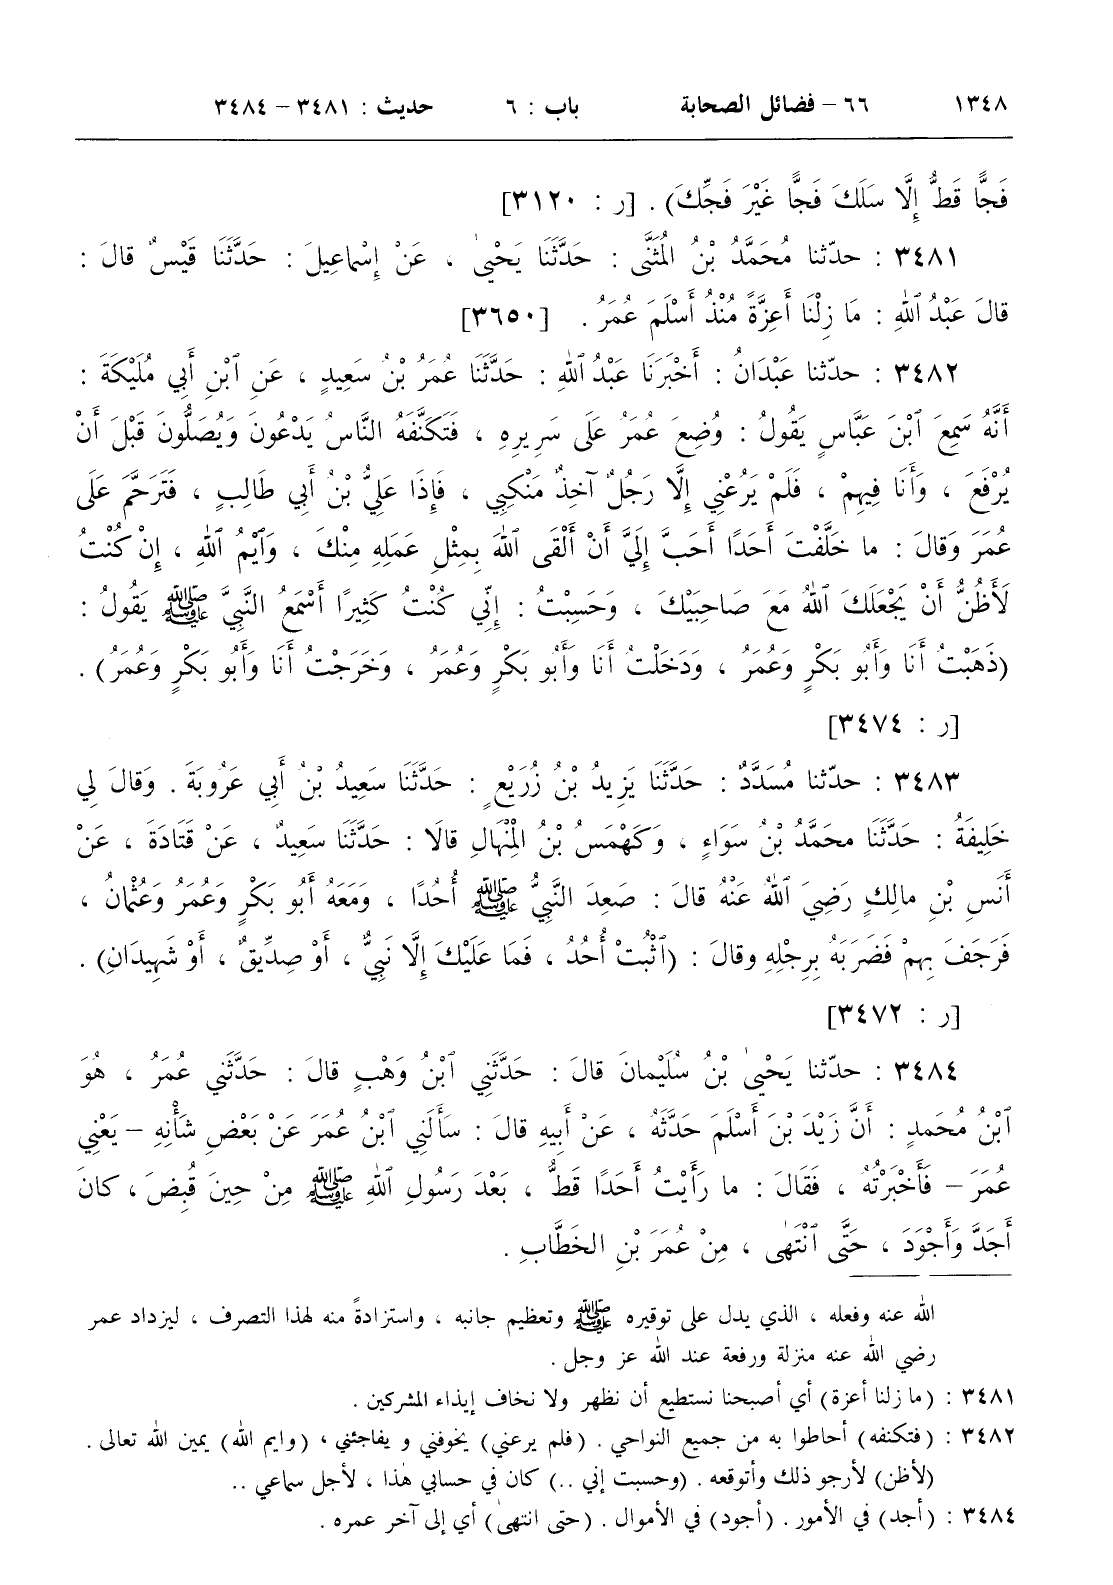 ١٣٤٨ ٦٦ – فضائل الصحابة باب : ٦ حديث : ٣٤٨١ – ٣٤٨٤
فَجًّا قَطُّ إِلَّا سَلَكَ فَجًّا غَيْرَ فَجِّكَ) . [ر : ٣١٢٠]
٣٤٨١ : حدّثنا مُحَمَّدُ بْنُ المُثَنَّى : حَدَّثَنَا يَحْيىٰ ، عَنْ إِسْماعِيلَ : حَدَّثَنَا قَيْسٌ قالَ :
قالَ عَبْدُ ٱللهِ : مَا زِلْنَا أَعِزَّةً مُنْذُ أَسْلَمَ عُمَرُ . [٣٦٥٠]
٣٤٨٢ : حدّثنا عَبْدَانُ : أَخْبَرَنَا عَبْدُ ٱللهِ : حَدَّثَنَا عُمَرُ بْنُ سَعِيدٍ ، عَنِ ٱبْنِ أَبِي مُلَيْكَةَ :
أَنَّهُ سَمِعَ ٱبْنَ عَبَّاسٍ يَقُولُ : وُضِعَ عُمَرُ عَلَى سَرِيرِهِ ، فَتَكَنَّفَهُ النَّاسُ يَدْعُونَ وَيُصَلُّونَ قَبْلَ أَنْ
يُرْفَعَ ، وَأَنَا فِيهِمْ ، فَلَمْ يَرُعْنِي إِلَّا رَجُلٌ آخِذٌ مَنْكِبِي ، فَإِذَا عَلِيُّ بْنُ أَبِي طَالِبٍ ، فَتَرَحَّمَ عَلَى
عُمَرَ وَقالَ : ما خَلَّفْتَ أَحَدًا أَحَبَّ إِلَيَّ أَنْ أَلْقَى ٱللهَ بِمِثْلِ عَمَلِهِ مِنْكَ ، وَٱيْمُ ٱللهِ ، إِنْ كُنْتُ
لَأَظُنُّ أَنْ يَجْعَلَكَ ٱللهُ مَعَ صَاحِبَيْكَ ، وَحَسِبْتُ : إِنِّي كُنْتُ كَثِيرًا أَسْمَعُ النَّبِيَّ ﷺ يَقُولُ :
(ذَهَبْتُ أَنَا وَأَبُو بَكْرٍ وَعُمَرُ ، وَدَخَلْتُ أَنَا وَأَبُو بَكْرٍ وَعُمَرُ ، وَخَرَجْتُ أَنَا وَأَبُو بَكْرٍ وَعُمَرُ) .
[ر : ٣٤٧٤]
٣٤٨٣ : حدّثنا مُسَدَّدٌ : حَدَّثَنَا يَزِيدُ بْنُ زُرَيْعٍ : حَدَّثَنَا سَعِيدُ بْنُ أَبِي عَرُوبَةَ . وَقالَ لِي
خَلِيفَةُ : حَدَّثَنَا محمَّدُ بْنُ سَوَاءٍ ، وَكَهْمَسُ بْنُ الْمِنْهَالِ قالَا : حَدَّثَنَا سَعِيدٌ ، عَنْ قَتَادَةَ ، عَنْ
أَنَسِ بْنِ مالِكٍ رَضِيَ ٱللهُ عَنْهُ قالَ : صَعِدَ النَّبِيُّ ﷺ أُحُدًا ، وَمَعَهُ أَبُو بَكْرٍ وَعُمَرُ وَعُثْمانُ ،
فَرَجَفَ بِهِمْ فَضَرَبَهُ بِرِجْلِهِ وقالَ : (ٱثْبُتْ أُحُدُ ، فَمَا عَلَيْكَ إِلَّا نَبِيٌّ ، أَوْ صِدِّيقٌ ، أَوْ شَهِيدَانِ) .
[ر : ٣٤٧٢]
٣٤٨٤ : حدّثنا يَحْيىٰ بْنُ سُلَيْمانَ قالَ : حَدَّثَنِي ٱبْنُ وَهْبٍ قالَ : حَدَّثَنِي عُمَرُ ، هُوَ
ٱبْنُ مُحَمدٍ : أَنَّ زَيْدَ بْنَ أَسْلَمَ حَدَّثَهُ ، عَنْ أَبِيهِ قالَ : سَأَلَنِي ٱبْنُ عُمَرَ عَنْ بَعْضِ شَأْنِهِ – يَعْنِي
عُمَرَ – فَأَخْبَرْتُهُ ، فَقَالَ : ما رَأَيْتُ أَحَدًا قَطُّ ، بَعْدَ رَسُولِ ٱللهِ ﷺ مِنْ حِينَ قُبِضَ ، كانَ
أَجَدَّ وَأَجْوَدَ ، حَتَّى ٱنْتَهٰى ، مِنْ عُمَرَ بْنِ الخَطَّابِ .
الله عنه وفعله ، الذي يدل على توقيره ﷺ وتعظيم جانبه ، واستزادةً منه لهذا التصرف ، ليزداد عمر
رضي الله عنه منزلة ورفعة عند الله عز وجل .
٣٤٨١ : (ما زلنا أعزة) أي أصبحنا نستطيع أن نظهر ولا نخاف إيذاء المشركين .
٣٤٨٢ : (فتكنفه) أحاطوا به من جميع النواحي . (فلم يرعني) يخوفني و يفاجئني ، (وايم الله) يمين الله تعالى .
(لأظن) لأرجو ذلك وأتوقعه . (وحسبت إني ..) كان في حسابي هٰذا ، لأجل سماعي ..
٣٤٨٤ : (أجد) في الأمور . (أجود) في الأموال . (حتى انتهىٰ) أي إلى آخر عمره .